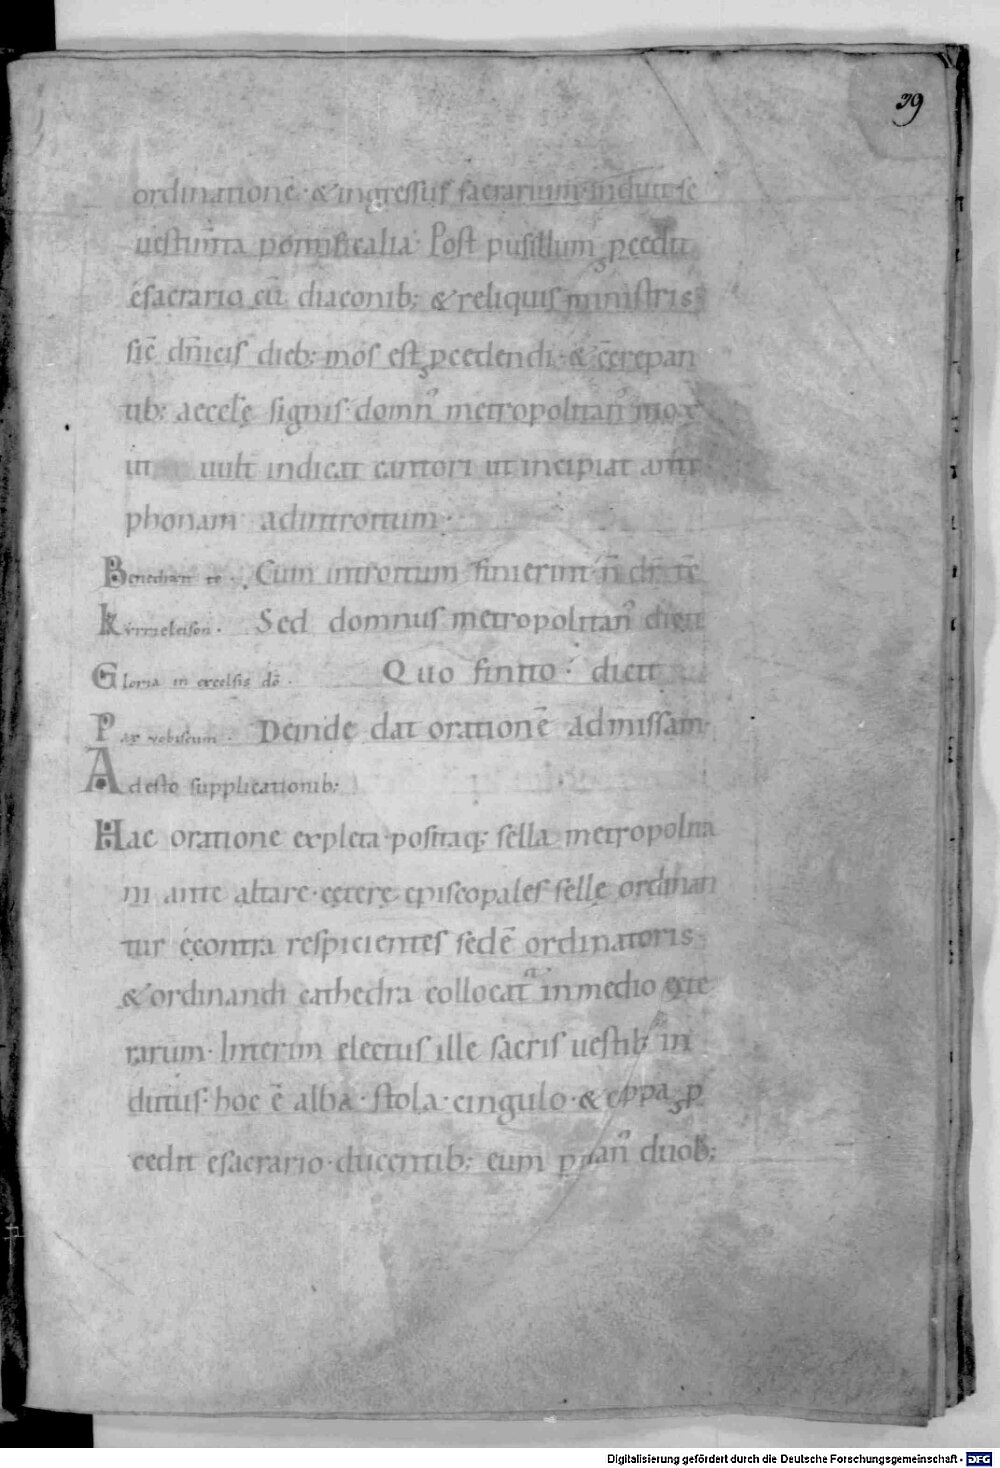 39
ordinationē· & ingressus sacrarium· induit se
uestim̄ta pontificalia· Post pusillum ꝓcedit
e sacrario cū diaconib; & reliquis ministris
sic̄ dn̄icis dieb; mos est ꝓcedendi· & c̄crepan
tib; accl̄ę signis· domn̄ꝰ metropolitan̄ꝰ mox
ut uult indicat cantori ut incipiat anti
phonam ad introitum·
Benedicat te· Cum introitum finierint· n̄ dr̄
Kyrrieleison· Sed domnus metropolitanꝰ dicit
Gloria in excelsis dō· Quo finito· dicit
Pax vobiscum· Deinde dat orationē ad missam·
Adesto supplicationib;
Hac oratione expleta· positaq; sella metropolita
ni ante altare· cęterę episcopales sellę ordinan
tur ęcontra respicientes sedē ordinatoris·
& ordinandi cathedra collocat᷑ in medio cęte
rarum· Interim electus ille sacris uestib; in
dutus· hoc ē alba· stola· cingulo· & cappa, ꝓ
cedit e sacrario· ducentib; eum duob;
Digitalisierung gefördert durch die Deutsche Forschungsgemeinschaft - DFG